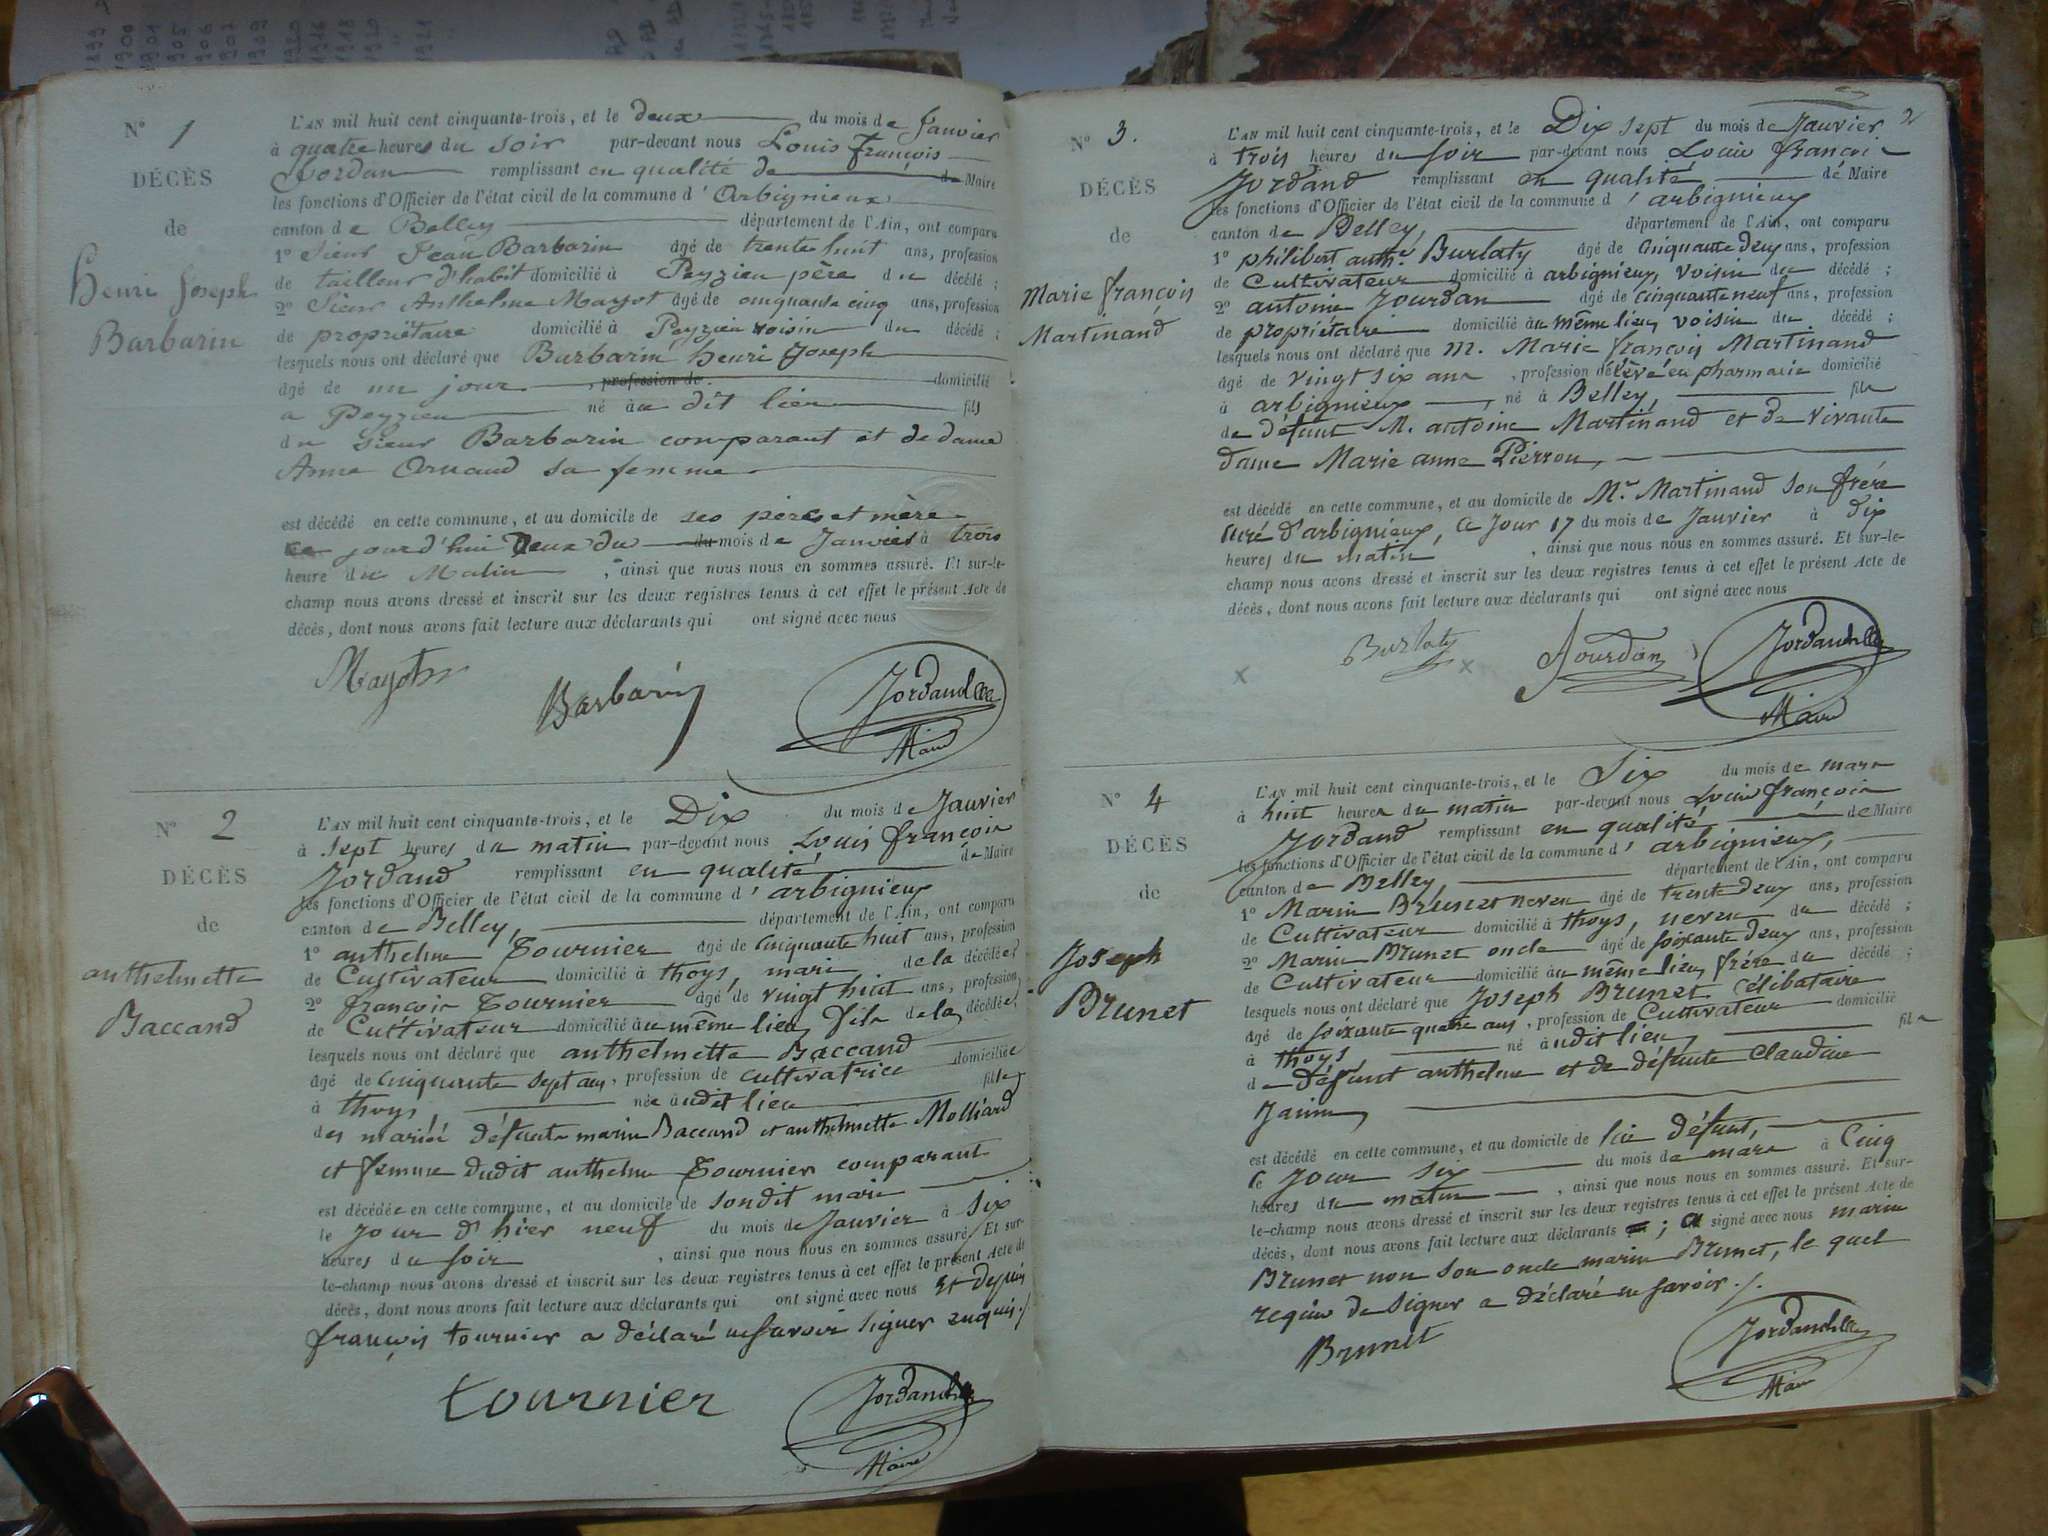 N° 1
DÉCÈS
de
henri Joseph
Barbarin
L'AN mil huit cent cinquante-trois, et le deux du mois de Janvier
à quatre heures du soir par-devant nous Louis françois
Jordan remplissant en qualité de de Maire
les fonctions d'Officier de l'état civil de la commune d'Arbignieux
canton de Belley département de l'Ain, ont comparu
1° Sieur Jean Barbarin âgé de trente huit ans, profession
de tailleur d'habit domicilié à Peyzieu père du décédé ;
2° Sieur Anthelme Mayot âgé de cinquante cinq ans, profession
de propriétaire domicilié à Peyzieu voisin du décédé ;
lesquels nous ont déclaré que Barbarin henri Joseph
âgé de un jour , profession de domicilié
a Peyzieu né au dit lieu fils
du Sieur Barbarin comparant et de dame
Anne Ornaud sa femme
est décédé en cette commune, et au domicile de ses pères et mère
ce jourd'hui Deux du du mois de Janvier à trois
heure du Matin , ainsi que nous nous en sommes assuré. Et sur-le-
champ nous avons dressé et inscrit sur les deux registres tenus à cet effet le présent Acte de
décès, dont nous avons fait lecture aux déclarants qui ont signé avec nous
Barbarin
Maire
N° 2
DÉCÈS
de
anthelmette
Baccand
L'AN mil huit cent cinquante-trois, et le Dix du mois de Janvier
à sept heures du matin par-devant nous Louis françois
Jordand remplissant en qualité de Maire
les fonctions d'Officier de l'état civil de la commune d'arbignieux
canton de Belley, département de l'Ain, ont comparu
1° anthelme Tournier âgé de cinquante huit ans, profession
de Cultivateur domicilié à thoys, mari de la décédée ;
2° françois Tournier âgé de vingt huit ans, profession
de Cultivateur domicilié au même lieu, fils de la décédée ;
lesquels nous ont déclaré que anthelmette Baccand
âgé de cinquante sept ans, profession de cultivatrice domiciliée
à thoys, née audit lieu fille
des mariés défunts marin Baccand et anthelmette Molliard
et femme dudit anthelme Tournier comparant
est décédée en cette commune, et au domicile de sondit mari
le jour d'hier neuf du mois de Janvier à six
heures du soir , ainsi que nous nous en sommes assuré. Et sur-
le-champ nous avons dressé et inscrit sur les deux registres tenus à cet effet le présent Acte de
décès, dont nous avons fait lecture aux déclarants qui ont signé avec nous
françois tournier a déclaré ne savoir signer enquis ./.
tournier
Maire
2
N° 3.
DÉCÈS
de
Marie françois
Martinand
L'AN mil huit cent cinquante-trois, et le Dix sept du mois de Janvier
à trois heures du soir par-devant nous Louis françois
Jordand remplissant en qualité de Maire
les fonctions d'Officier de l'état civil de la commune d'arbignieux
canton de Belley, département de l'Ain, ont comparu
1° philibert anth.e Burlaty âgé de cinquante deux ans, profession
de Cultivateur domicilié à arbignieux, voisin du décédé ;
2° antoine Jourdan âgé de cinquante neuf ans, profession
de propriétaire domicilié au même lieu, voisin du décédé ;
lesquels nous ont déclaré que M. Marie françois Martinand
âgé de vingt six ans , profession d'élève en pharmacie domicilié
à arbignieux né à Belley, fils
de défunt M. antoine Martinand et de vivante
dame Marie anne Pierron,
est décédé en cette commune, et au domicile de Mr. Martinand son frère
curé d'arbignieux, ce jour 17 du mois de Janvier à dix
heures du matin , ainsi que nous nous en sommes assuré. Et sur-le-
champ nous avons dressé et inscrit sur les deux registres tenus à cet effet le présent Acte de
décès, dont nous avons fait lecture aux déclarants qui ont signé avec nous
Burlaty Jourdan
Maire
N° 4
DÉCÈS
de
Joseph
Brunet
L'AN mil huit cent cinquante-trois, et le Six du mois de mars
à huit heures du matin par-devant nous Louis françois
Jordand remplissant en qualité de Maire
les fonctions d'Officier de l'état civil de la commune d'arbignieux,
canton de Belley, département de l'Ain, ont comparu
1° Marin Brunet neveu âgé de trent deux ans, profession
de Cultivateur domicilié à thoys, neveu du décédé ;
2° Marin Brunet oncle âgé de soixante deux ans, profession
de Cultivateur domicilié au même lieu, frère du décédé ;
lesquels nous ont déclaré que Joseph Brunet Célibataire
âgé de soixante quatre ans, profession de Cultivateur domicilié
à thoys, né audit lieu, fils
de défunt anthelme et de défunte Claudine
Janin,
est décédé en cette commune, et au domicile de lui défunt,
ce jour six du mois de mars à Cinq
heures du matin , ainsi que nous nous en sommes assuré. Et sur-
le-champ nous avons dressé et inscrit sur les deux registres tenus à cet effet le présent Acte de
décès, dont nous avons fait lecture aux déclarants ; a signé avec nous marin
Brunet non son oncle marin Brunet, le quel
requis de signer a déclaré ne savoir ./.
Brunet
Maire